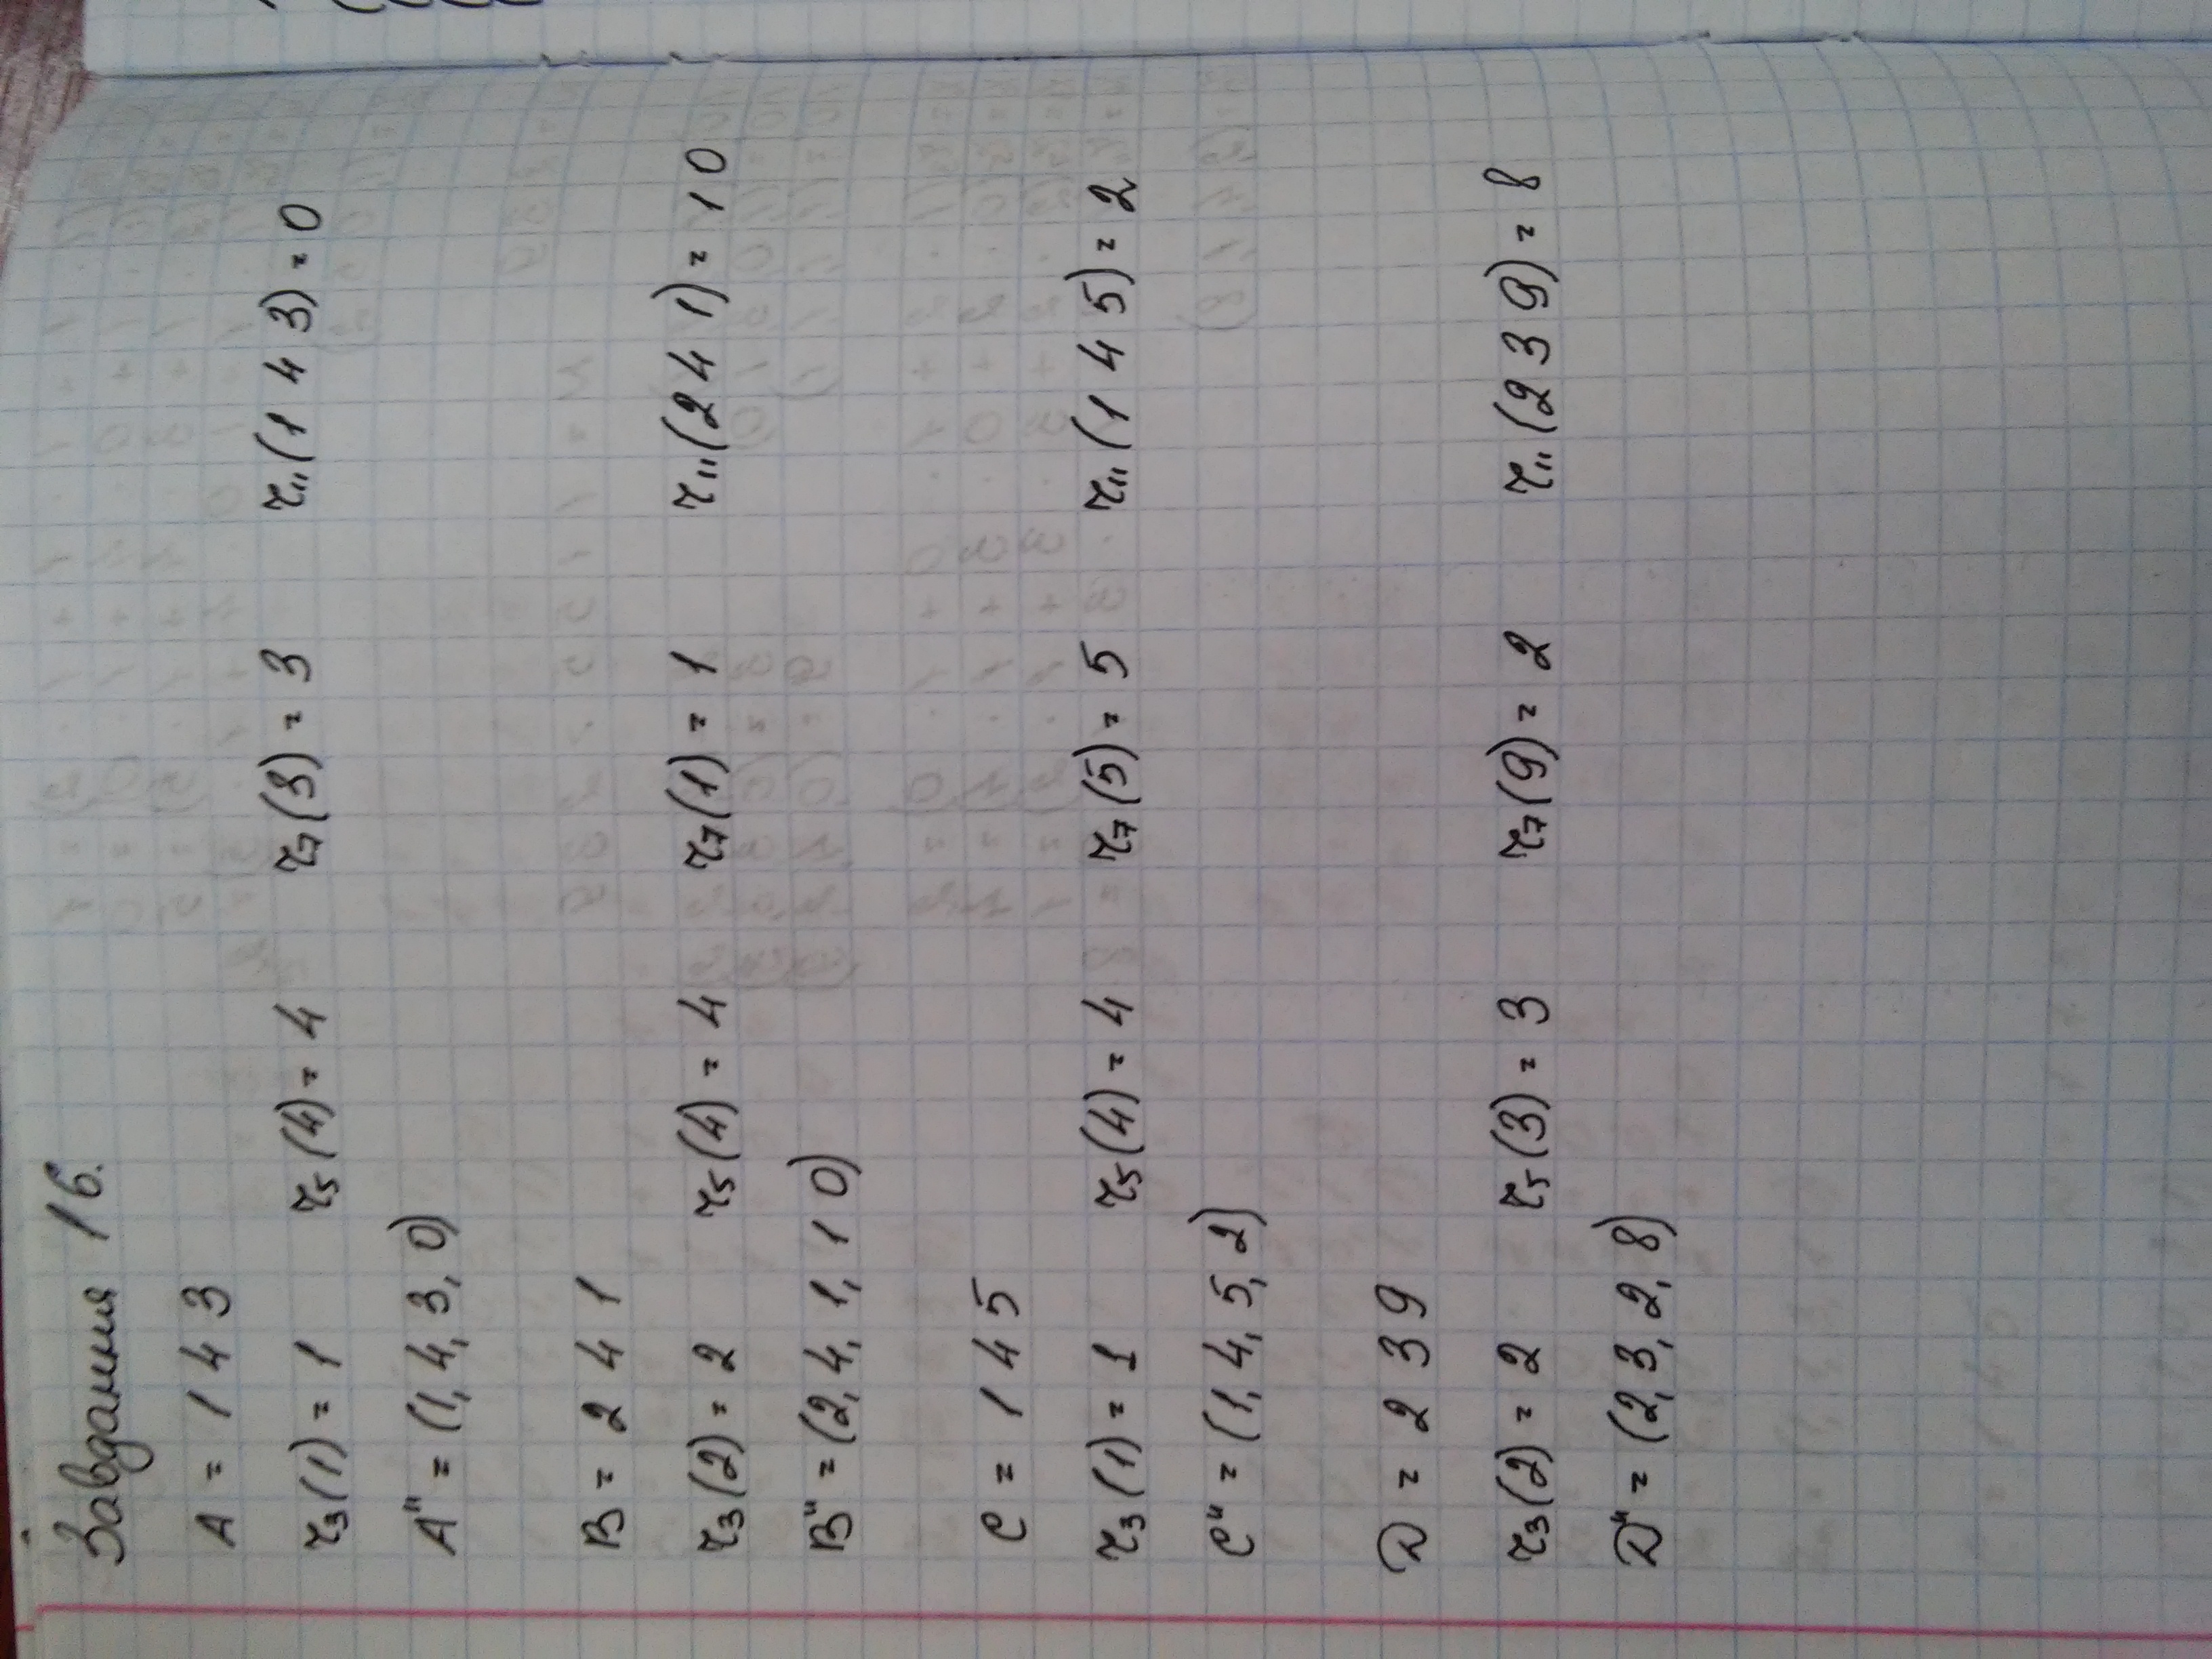 Завдання 16.
A = 143
r₃(1) = 1 r₅(4) = 4 r₇(3) = 3 r₁₁(143) = 0
A" = (1, 4, 3, 0)
B = 241
r₃(2) = 2 r₅(4) = 4 r₇(1) = 1 r₁₁(241) = 10
B" = (2, 4, 1, 10)
C = 145
r₃(1) = 1 r₅(4) = 4 r₇(5) = 5 r₁₁(145) = 2
C" = (1, 4, 5, 2)
D = 239
r₃(2) = 2 r₅(3) = 3 r₇(9) = 2 r₁₁(239) = 8
D" = (2, 3, 2, 8)